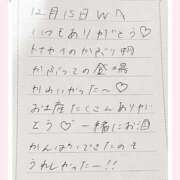 12月15日Wへ
いつもありがとう♡
トナカイのかぶり物
かぶっての登場
かわいかった〜♡
お土産たくさんありが
とう♡ 一緒にお酒
かんぱいできたのも
うれしかったー!!